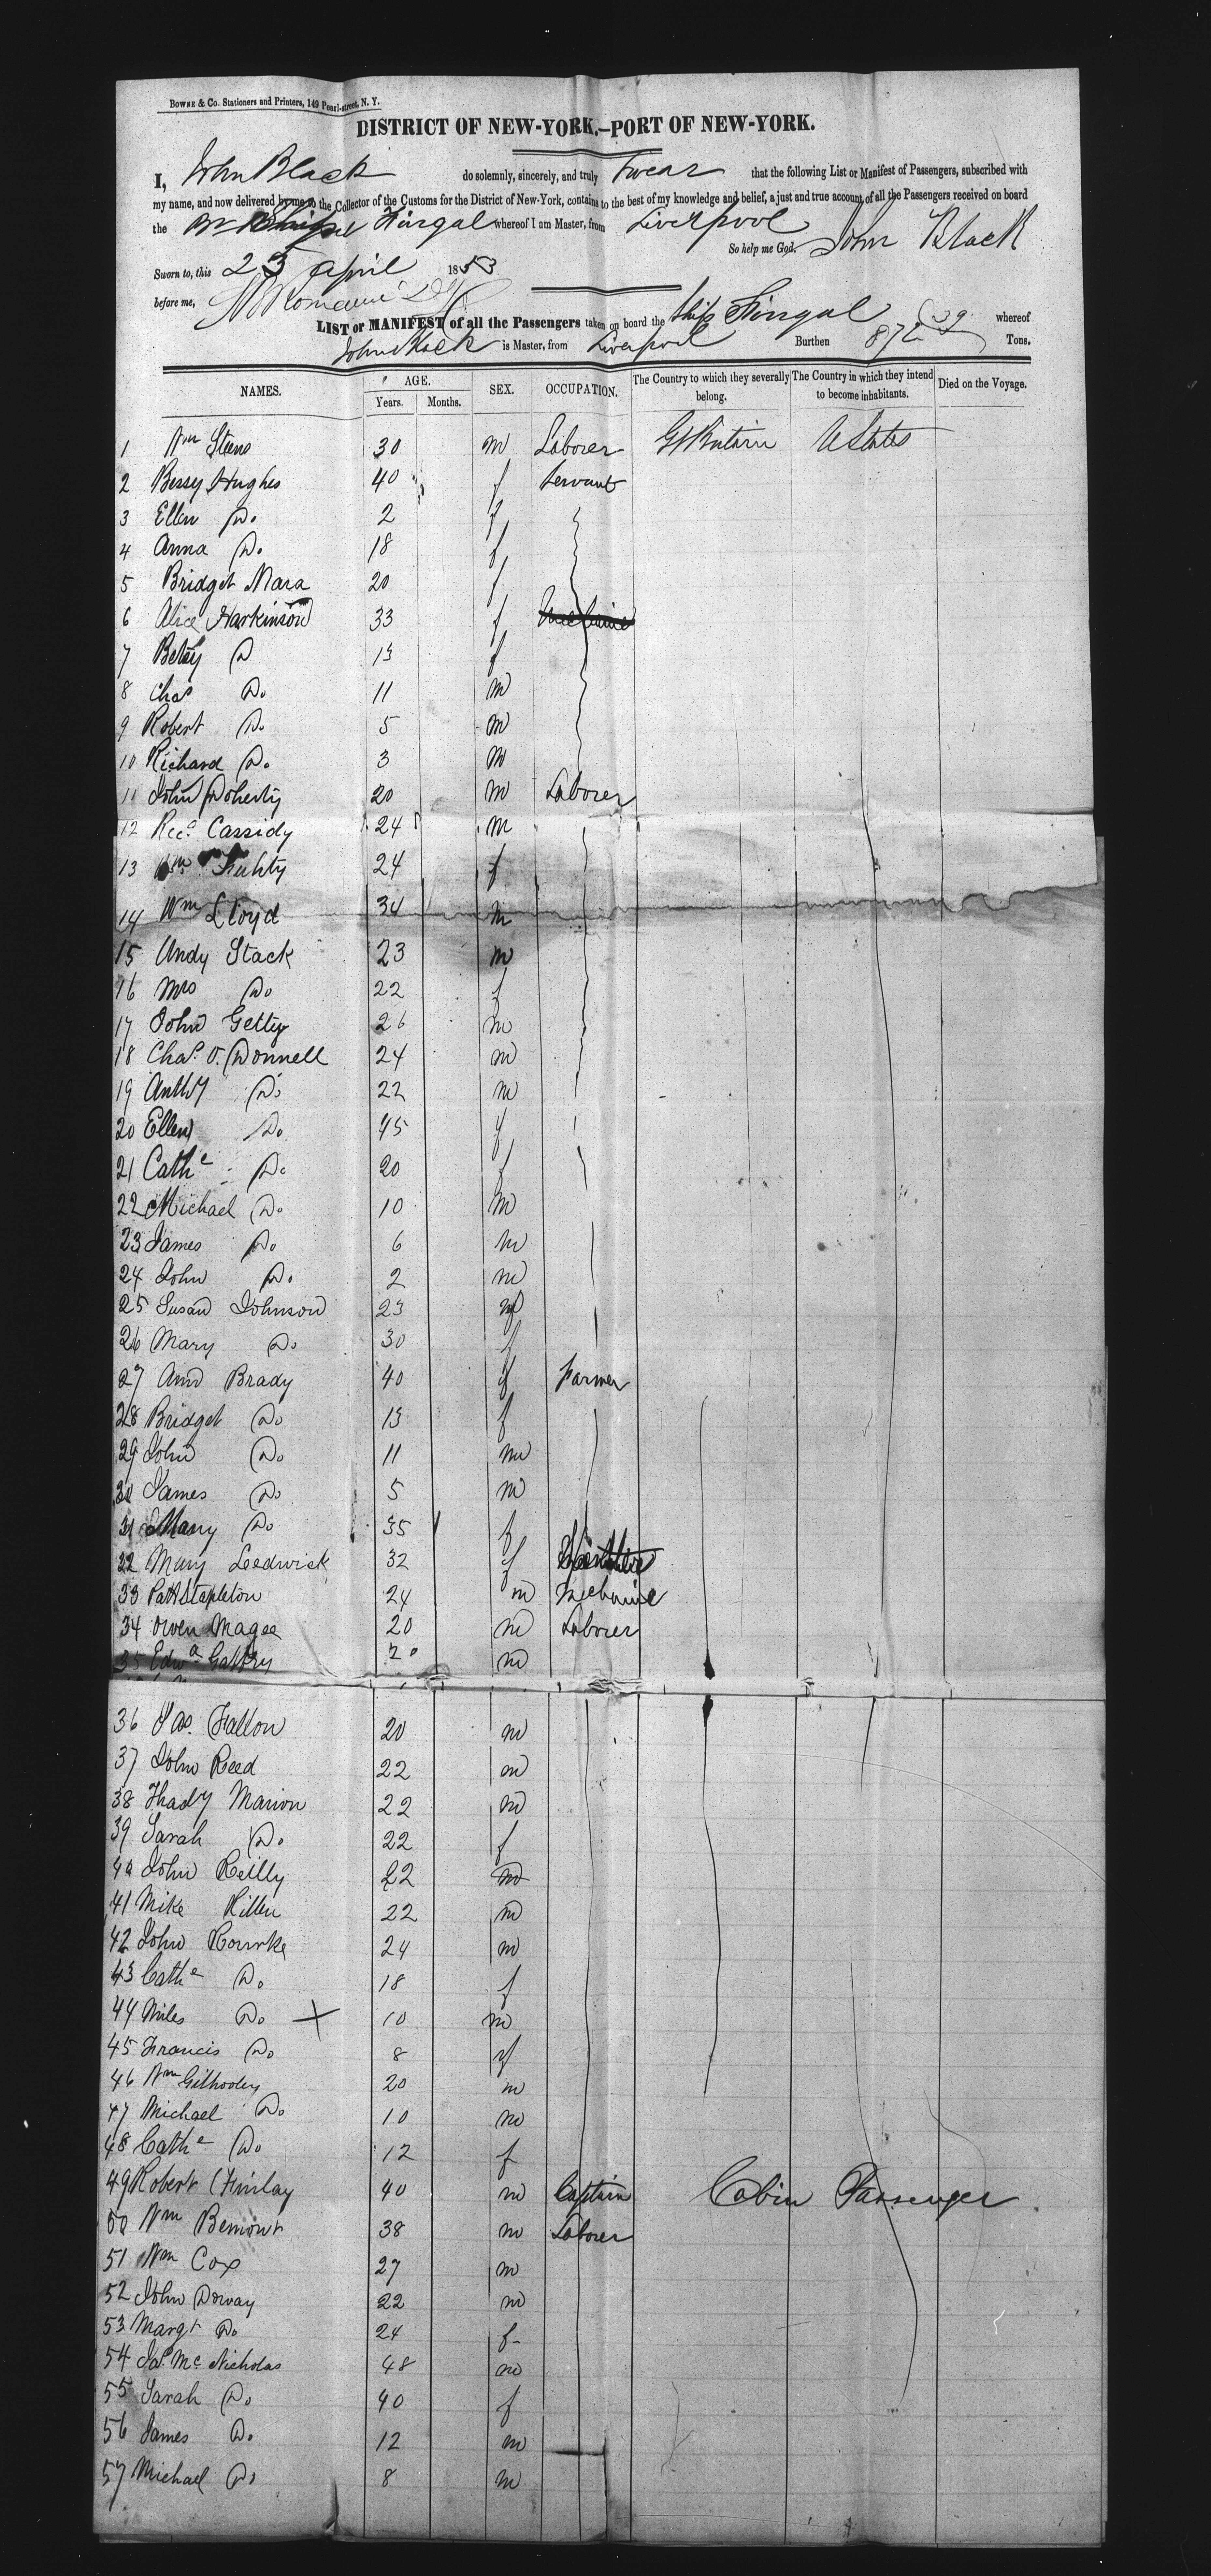 BOWNE & CO. Stationers and Printers, 149 Pearl-street, N. Y.
DISTRICT OF NEW-YORK.—PORT OF NEW-YORK.
I, John Black do solemnly, sincerely, and truly swear that the following List or Manifest of Passengers, subscribed with
my name, and now delivered by me to the Collector of the Customs for the District of New-York, contains to the best of my knowledge and belief, a just and true account of all the Passengers received on board
the Br Fingal whereof I am Master, from Liverpool
So help me God. John Black
Sworn to, this 25 April 1853
before me,
LIST or MANIFEST of all the Passengers taken on board the Ship Fingal whereof
John Black is Master, from Liverpool Burthen 872 Tons.
NAMES. AGE. Years. Months. SEX. OCCUPATION. The Country to which they severally belong. The Country in which they intend to become inhabitants. Died on the Voyage.
1 Wm 30 m Laborer Gt Britain U States
2 Bessy Hughes 40 f Servant
3 Ellen Do 2 f
4 Anna Do 18 f
5 Bridget Mara 20 f
6 Alice Harkinson 33 f
7 Betsy D 13 f
8 Chas Do 11 m
9 Robert Do 5 m
10 Richard Do 3 m
11 John Doherty 20 m Laborer
12 Cassidy 24 m
13 24 f
14 Wm Lloyd 34 m
15 Andy Stack 23 m
16 Mrs Do 22 f
17 John Getty 26 m
18 Chas O. Donnell 24 m
19 Anthy Do 22 m
20 Ellen Do 45 f
21 Cathe Do 20 f
22 Michael Do 10 m
23 James Do 6 m
24 John Do 2 m
25 Susan Johnson 23 f
26 Mary Do 30 f
27 Ann Brady 40 f Farmer
28 Bridget Do 13 f
29 John Do 11 m
30 James Do 5 m
31 Mary Do 35 f
32 Mary Ledwick 32 f
33 Patk Stapleton 24 m Mechanic
34 Owen Magee 20 m Laborer
35 Edwd 20 m
36 Jas. Fallon 20 m
37 John Reed 22 m
38 Thady Marion 22 m
39 Sarah Do 22 f
40 John Reilly 22 m
41 Mike Killen 22 m
42 John Rourke 24 m
43 Cathe Do 18 f
44 Miles Do X 10 m
45 Francis Do 8 f
46 Wm Gilhooley 20 m
47 Michael Do 10 m
48 Cathe Do 12 f
49 Robert Finlay 40 m Captain Cabin Passenger
50 Wm Bemont 38 m Laborer
51 Wm Cox 27 m
52 John 22 m
53 Margt Do 24 f
54 Jas Mc Nicholas 48 m
55 Sarah Do 40 f
56 James Do 12 m
57 Michael Do 8 m